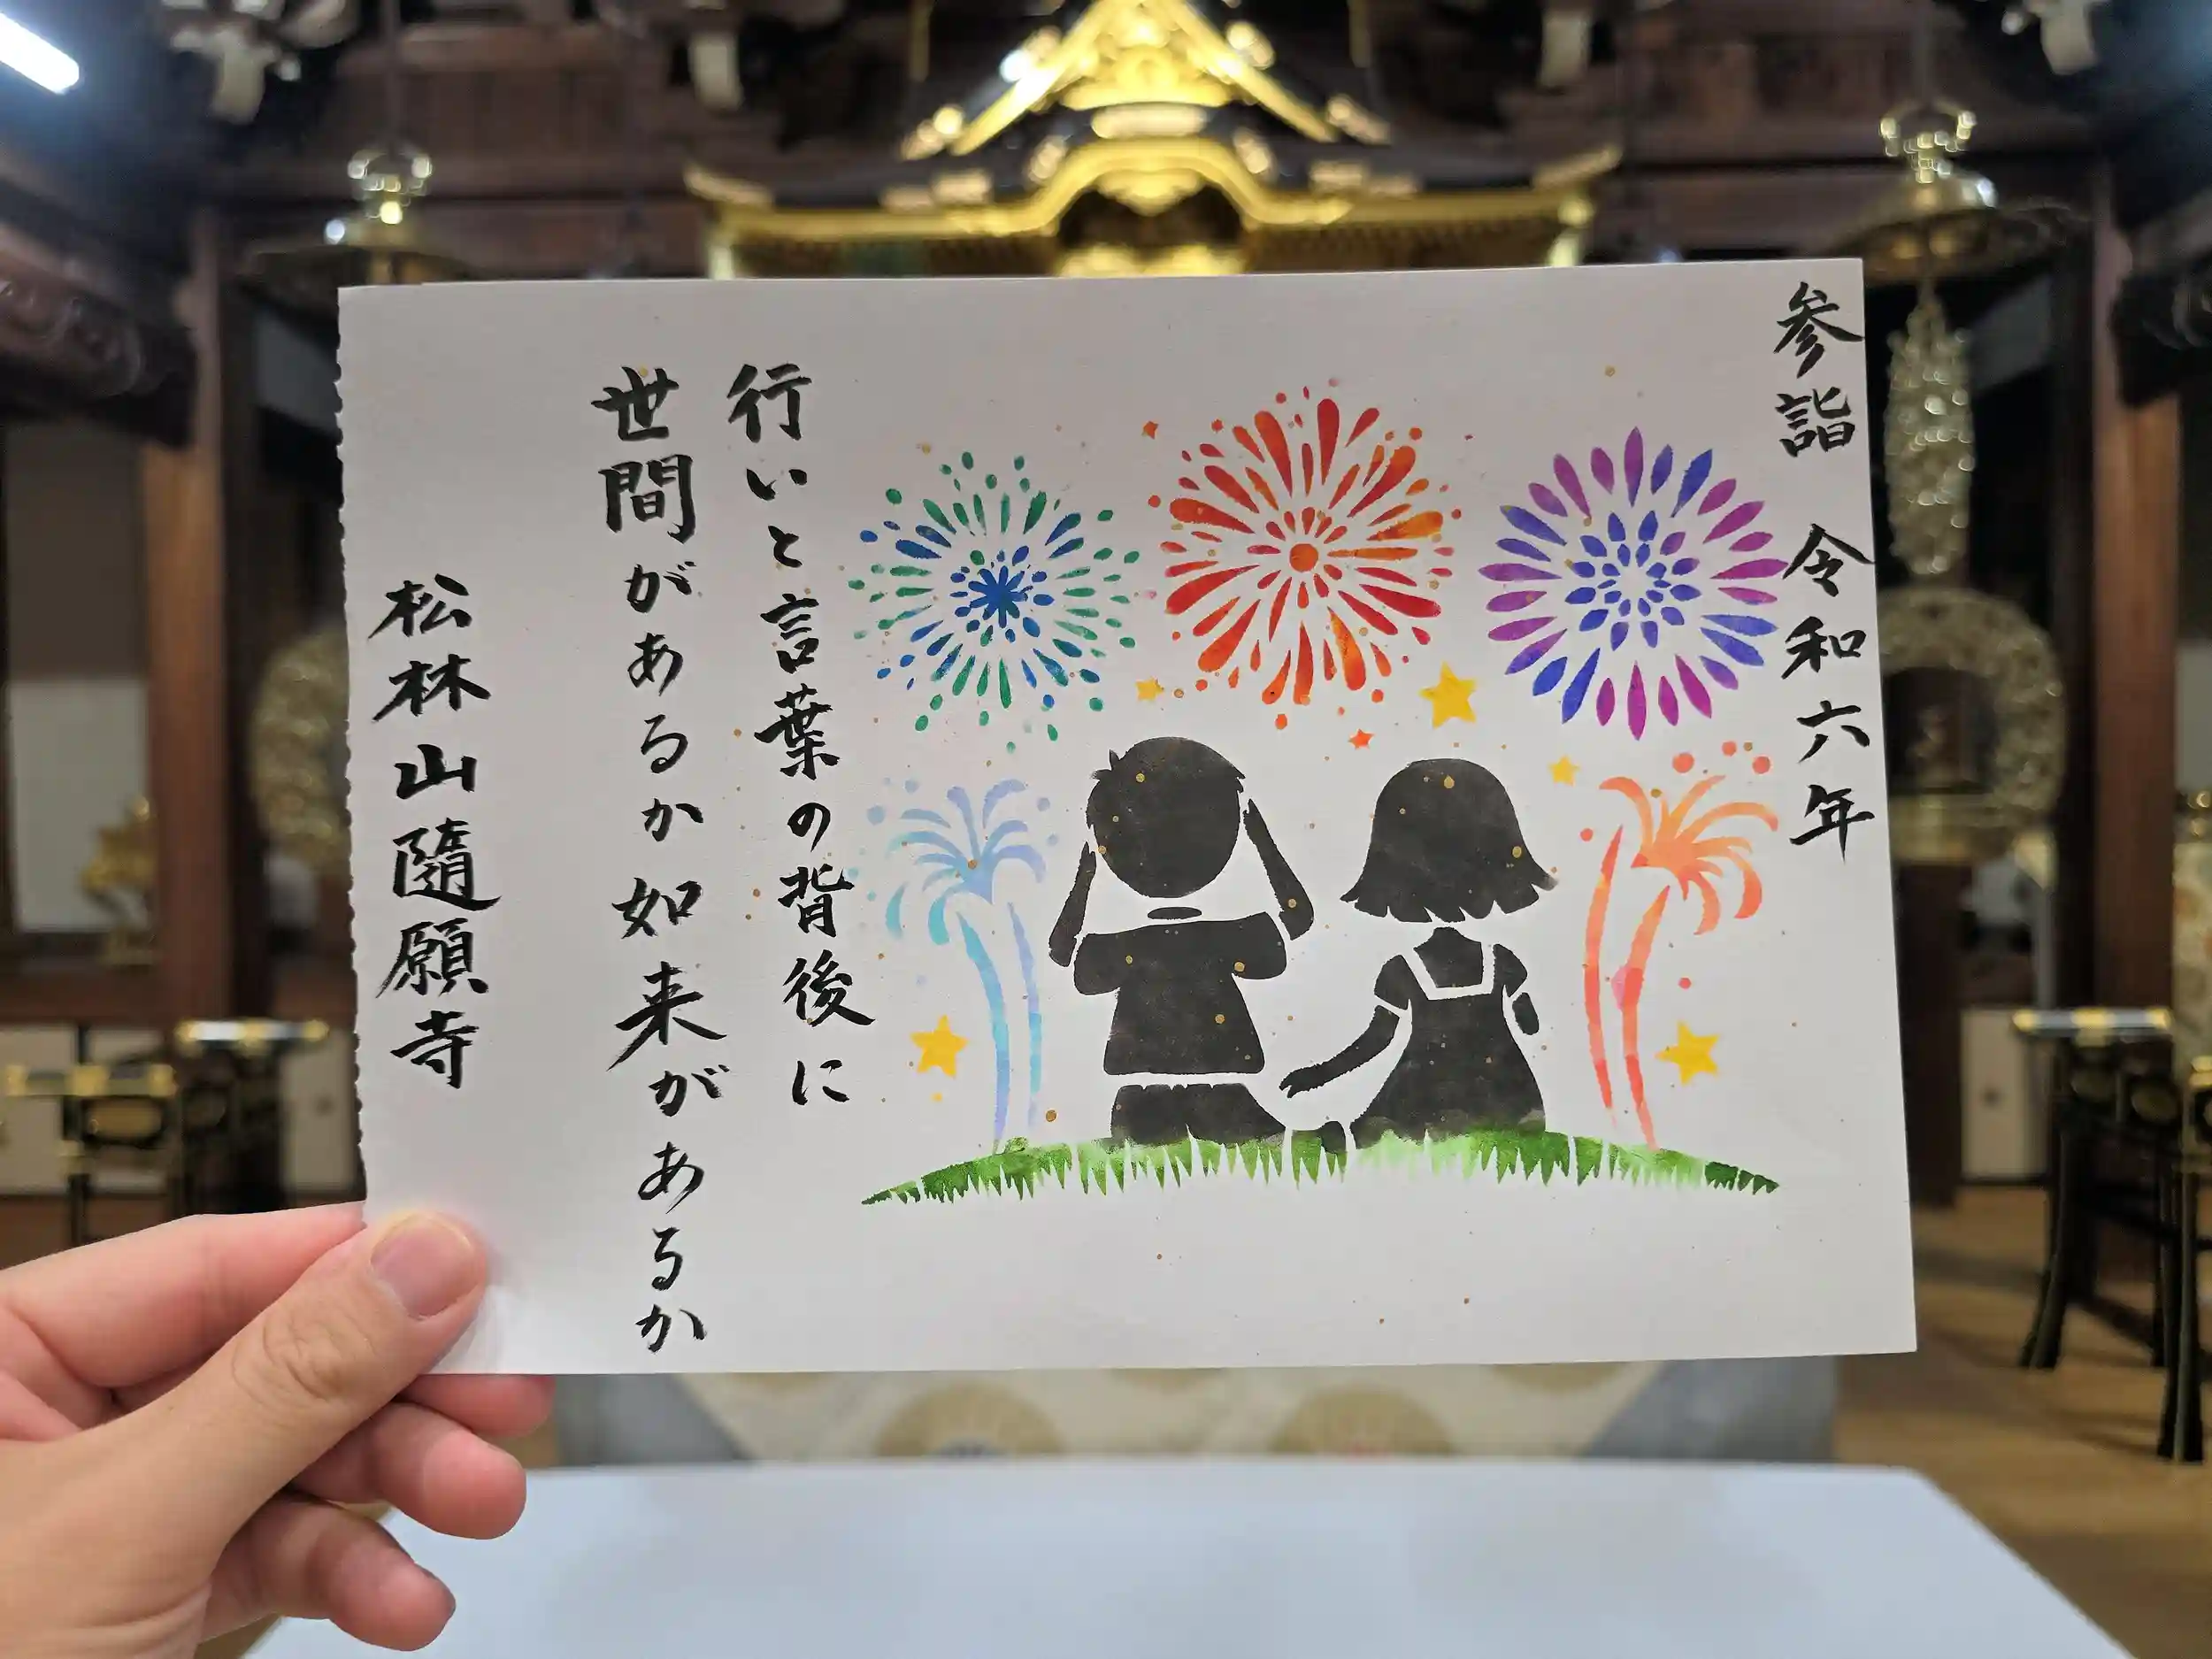 参詣 令和六年
行いと言葉の背後に
世間があるか如来があるか
松林山隨願寺